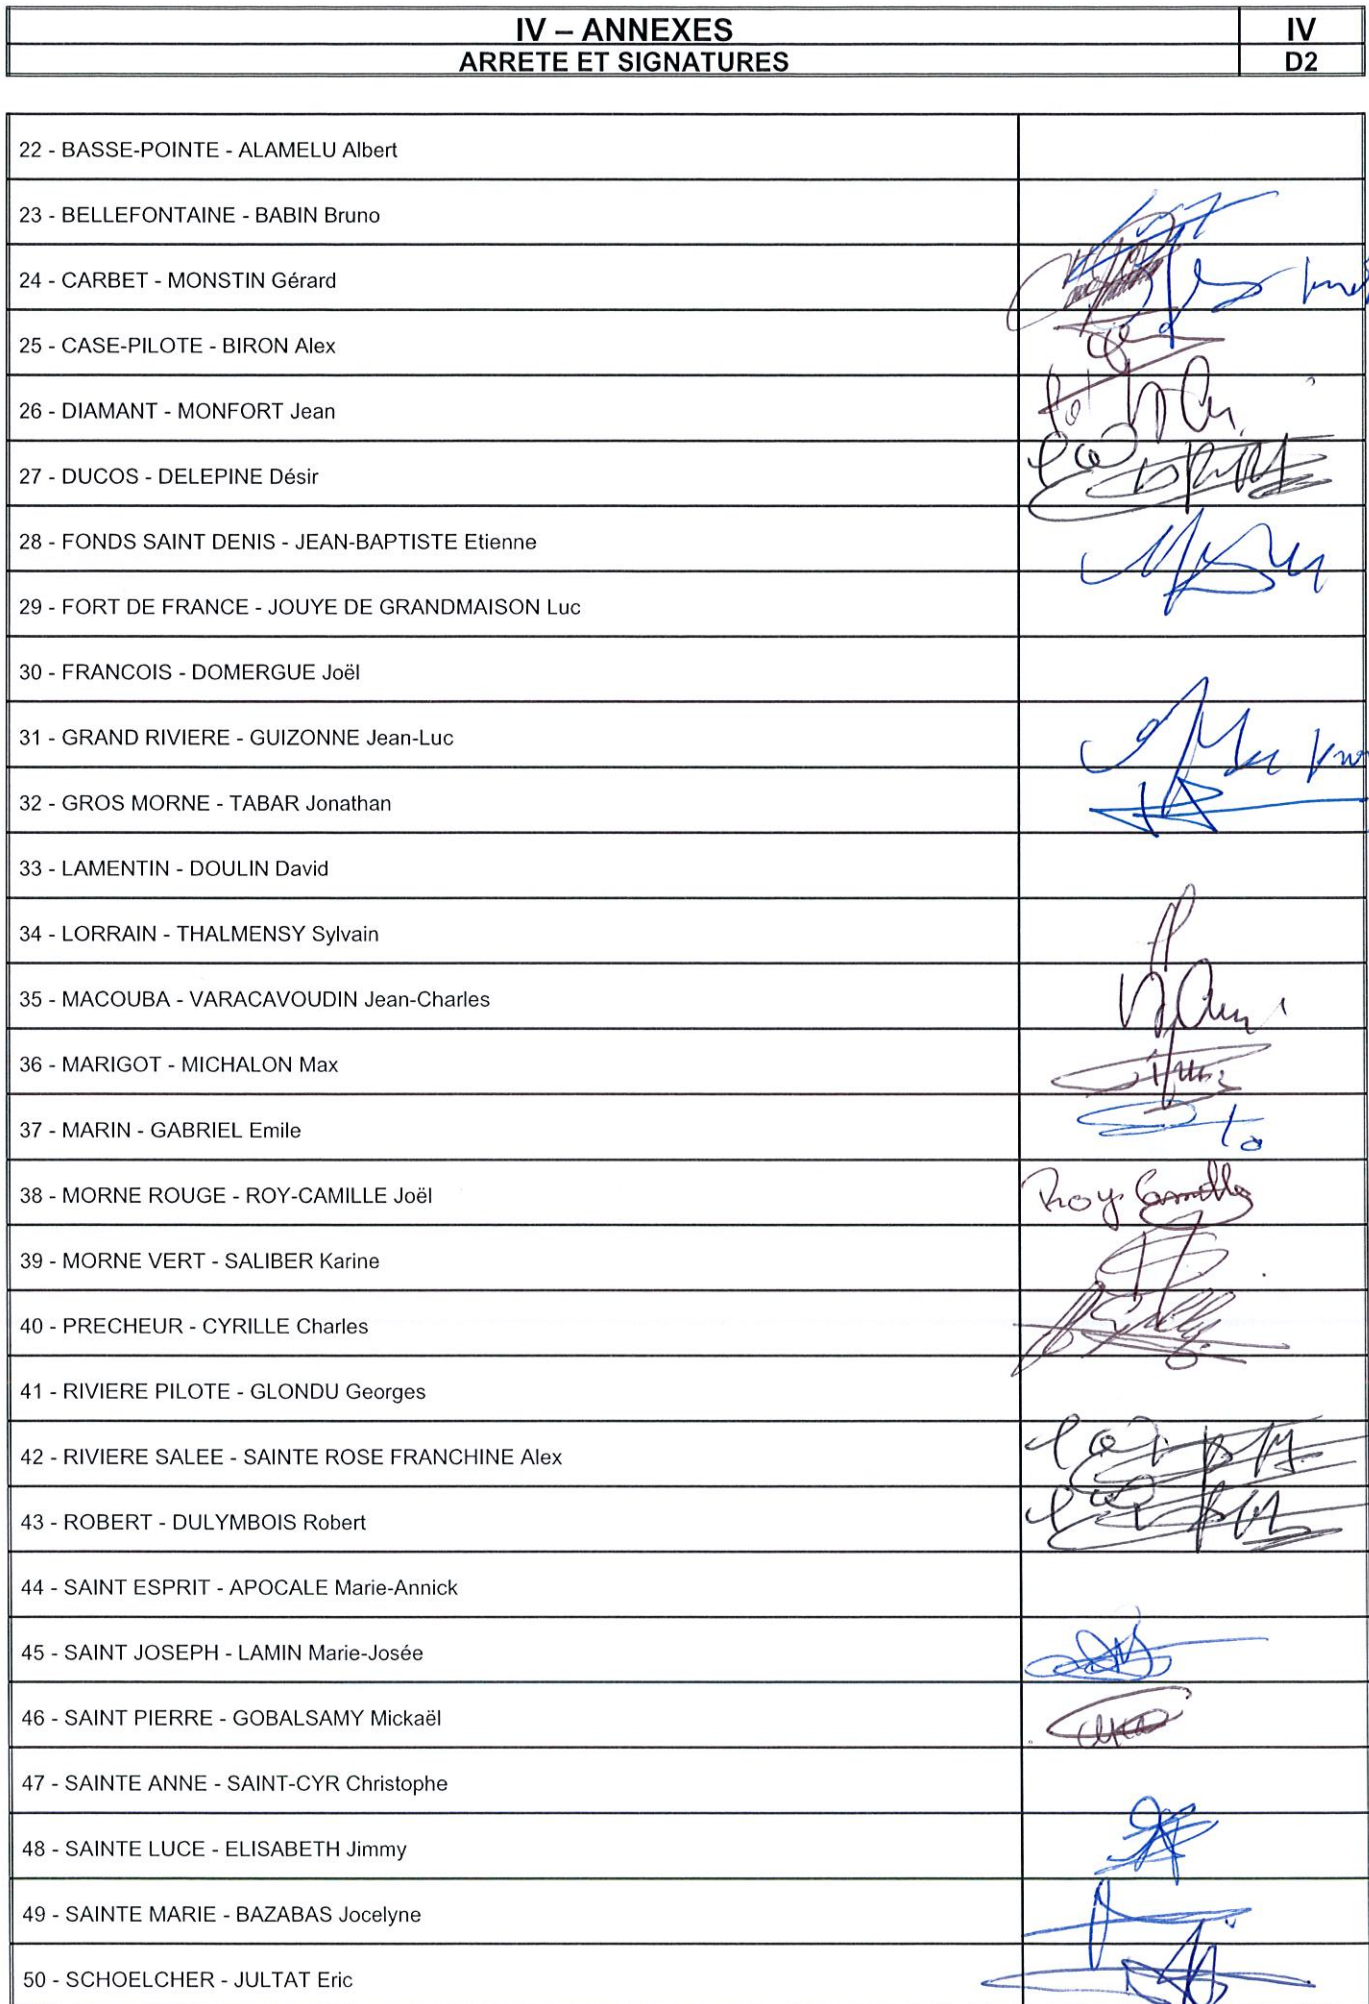 IV – ANNEXES IV
ARRETE ET SIGNATURES D2
22 - BASSE-POINTE - ALAMELU Albert
23 - BELLEFONTAINE - BABIN Bruno
24 - CARBET - MONSTIN Gérard
25 - CASE-PILOTE - BIRON Alex
26 - DIAMANT - MONFORT Jean
27 - DUCOS - DELEPINE Désir
28 - FONDS SAINT DENIS - JEAN-BAPTISTE Etienne
29 - FORT DE FRANCE - JOUYE DE GRANDMAISON Luc
30 - FRANCOIS - DOMERGUE Joël
31 - GRAND RIVIERE - GUIZONNE Jean-Luc
32 - GROS MORNE - TABAR Jonathan
33 - LAMENTIN - DOULIN David
34 - LORRAIN - THALMENSY Sylvain
35 - MACOUBA - VARACAVOUDIN Jean-Charles
36 - MARIGOT - MICHALON Max
37 - MARIN - GABRIEL Emile
38 - MORNE ROUGE - ROY-CAMILLE Joël Roy Camille
39 - MORNE VERT - SALIBER Karine
40 - PRECHEUR - CYRILLE Charles
41 - RIVIERE PILOTE - GLONDU Georges
42 - RIVIERE SALEE - SAINTE ROSE FRANCHINE Alex
43 - ROBERT - DULYMBOIS Robert
44 - SAINT ESPRIT - APOCALE Marie-Annick
45 - SAINT JOSEPH - LAMIN Marie-Josée
46 - SAINT PIERRE - GOBALSAMY Mickaël
47 - SAINTE ANNE - SAINT-CYR Christophe
48 - SAINTE LUCE - ELISABETH Jimmy
49 - SAINTE MARIE - BAZABAS Jocelyne
50 - SCHOELCHER - JULTAT Eric